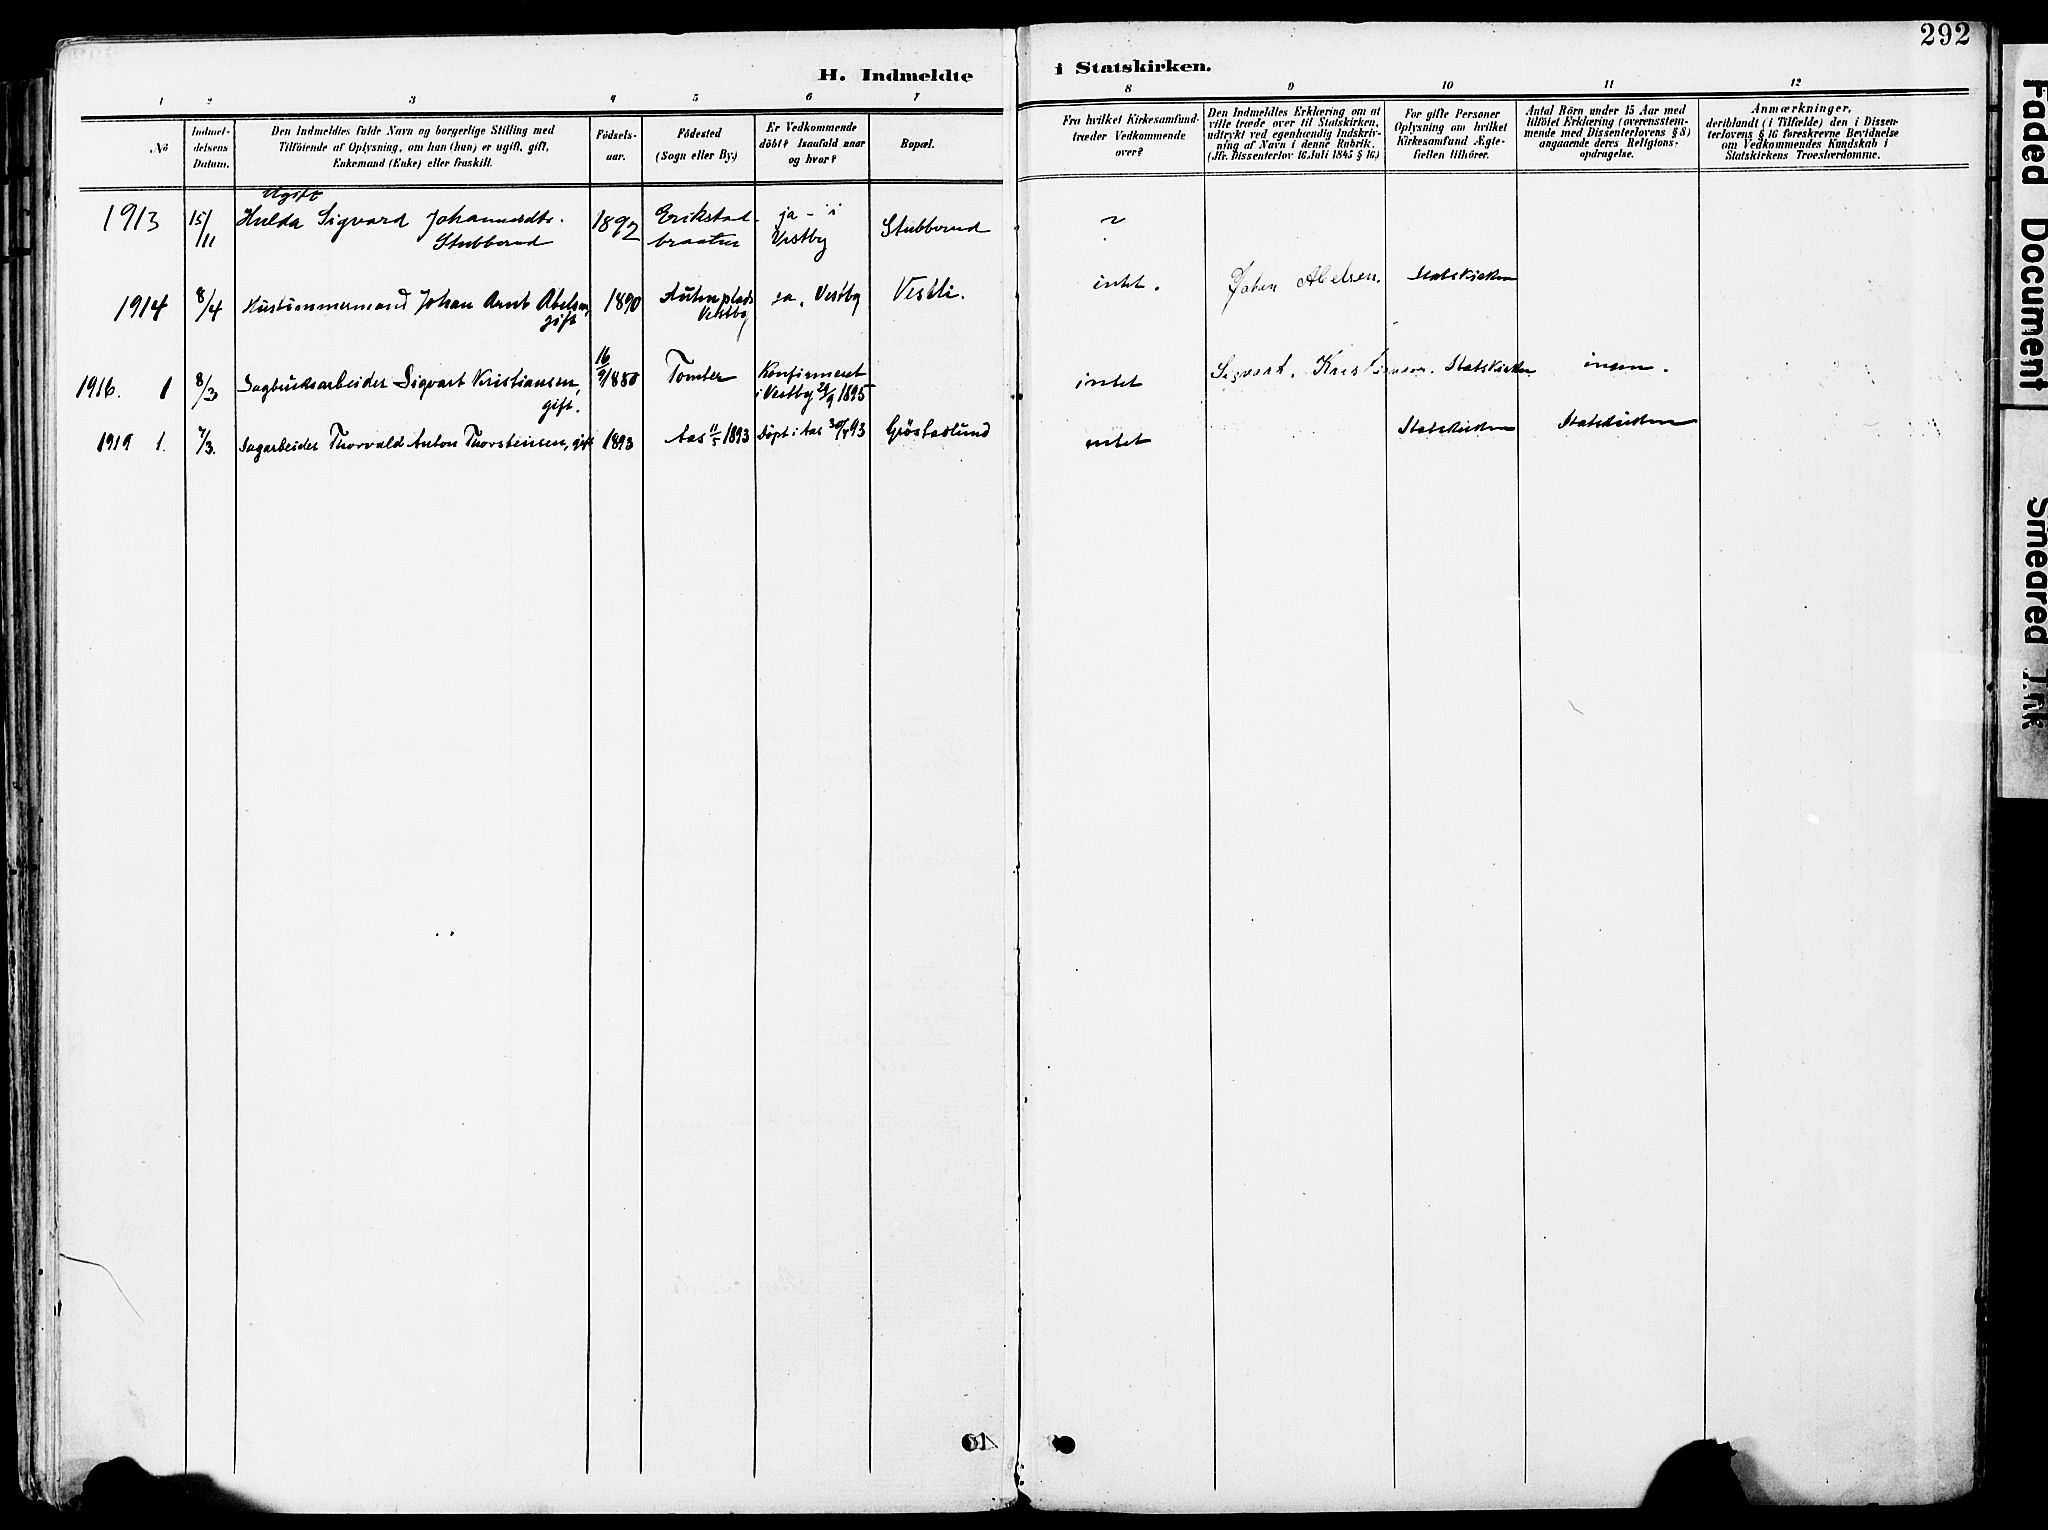 292
H. Indmeldte i Statskirken.
1 2 3 4 5 6 7 8 9 10 11 12
No
Indmel-
delsens
Datum.
Den Indmeldtes fulde Navn og borgerlige Stilling med
Tilföiende af Oplysning, om han (hun) er ugift, gift,
Enkemand (Enke) eller fraskilt.
Födsels-
aar.
Födested
(Sogn eller By.)
Er Vedkommende
döbt? Isaafald naar
og hvor?
Bopæl.
Fra hvilket Kirkesamfund
træder Vedkommende
over?
Den Indmeldtes Erklæring om at
ville træde over til Statskirken,
udtrykt ved egenhændig Indskriv-
ning af Navn i denne Rubrik.
(Jfr. Dissenterlov 16 Juli 1845 § 16.)
For gifte Personer
Oplysning om hvilket
Kirkesamfund Ægte-
fællen tilhörer.
Antal Börn under 15 Aar med
tilföiet Erklæring (overensstem-
mende med Dissenterlovens § 8)
angaaende deres Religions-
opdragelse.
Anmærkninger,
deriblandt (i Tilfælde) den i Dissen-
terlovens § 16 foreskrevne Bevidnelse
om Vedkommendes Kundskab i
Statskirkens Troeslærdomme.
Ugift
1913 15/11 Hulda Sigvard
Stubberud
1892
Erikstad-
braaten
ja - i
Vestby
Stubberud
?
1914 8/4 Johan Arnt Abelsen,
gift
1890
Vestby
ja, Vestby
Vestli.
intet.
Johan Abelsen.
Statskirken
1916. 1 8/3 Sagbruksarbeider Sigvart Kristiansen,
gift.
16/9 1880
Tomter
Konfirmeret
i Vestby 29/9 1895
intet
Sigvart. Kristiansen.
Statskirken
ingen.
1919 1. 7/3. Sagarbeider Thorvald Anton Thorstensen, gift
1893
Aas 11/5 1893
Döpt i Aas
93
intet
Statskirken
Statskirken
Faded Document
Smeared Ink